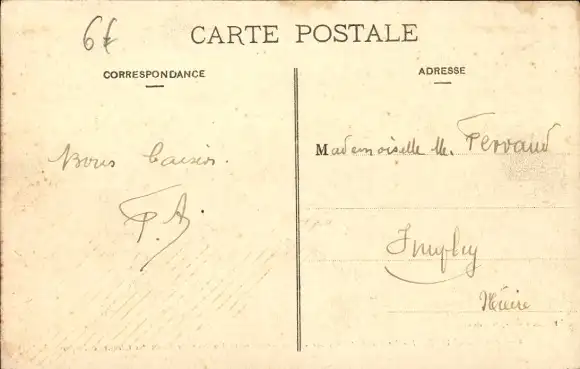 6f
CARTE POSTALE
CORRESPONDANCE
ADRESSE
Mademoiselle M. Fervaud
Bons baisers.
F. A.
Imphy
Nièvre